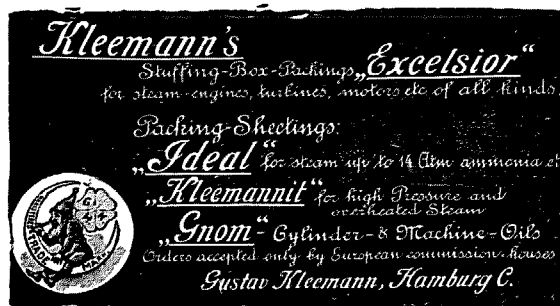 Kleemann's
Stuffing-Box-Packings „Excelsior“
for steam-engines, turbines, motors etc of all kinds.
Packing-Sheetings:
„Ideal“ for steam up to 14 Atm ammonia et
„Kleemannit“ for high Pressure and
overheated Steam
„Gnom“- Cylinder- & Machine-Oils
Orders accepted only by European commission-houses
Gustav Kleemann, Hamburg C.
TRADE MARK